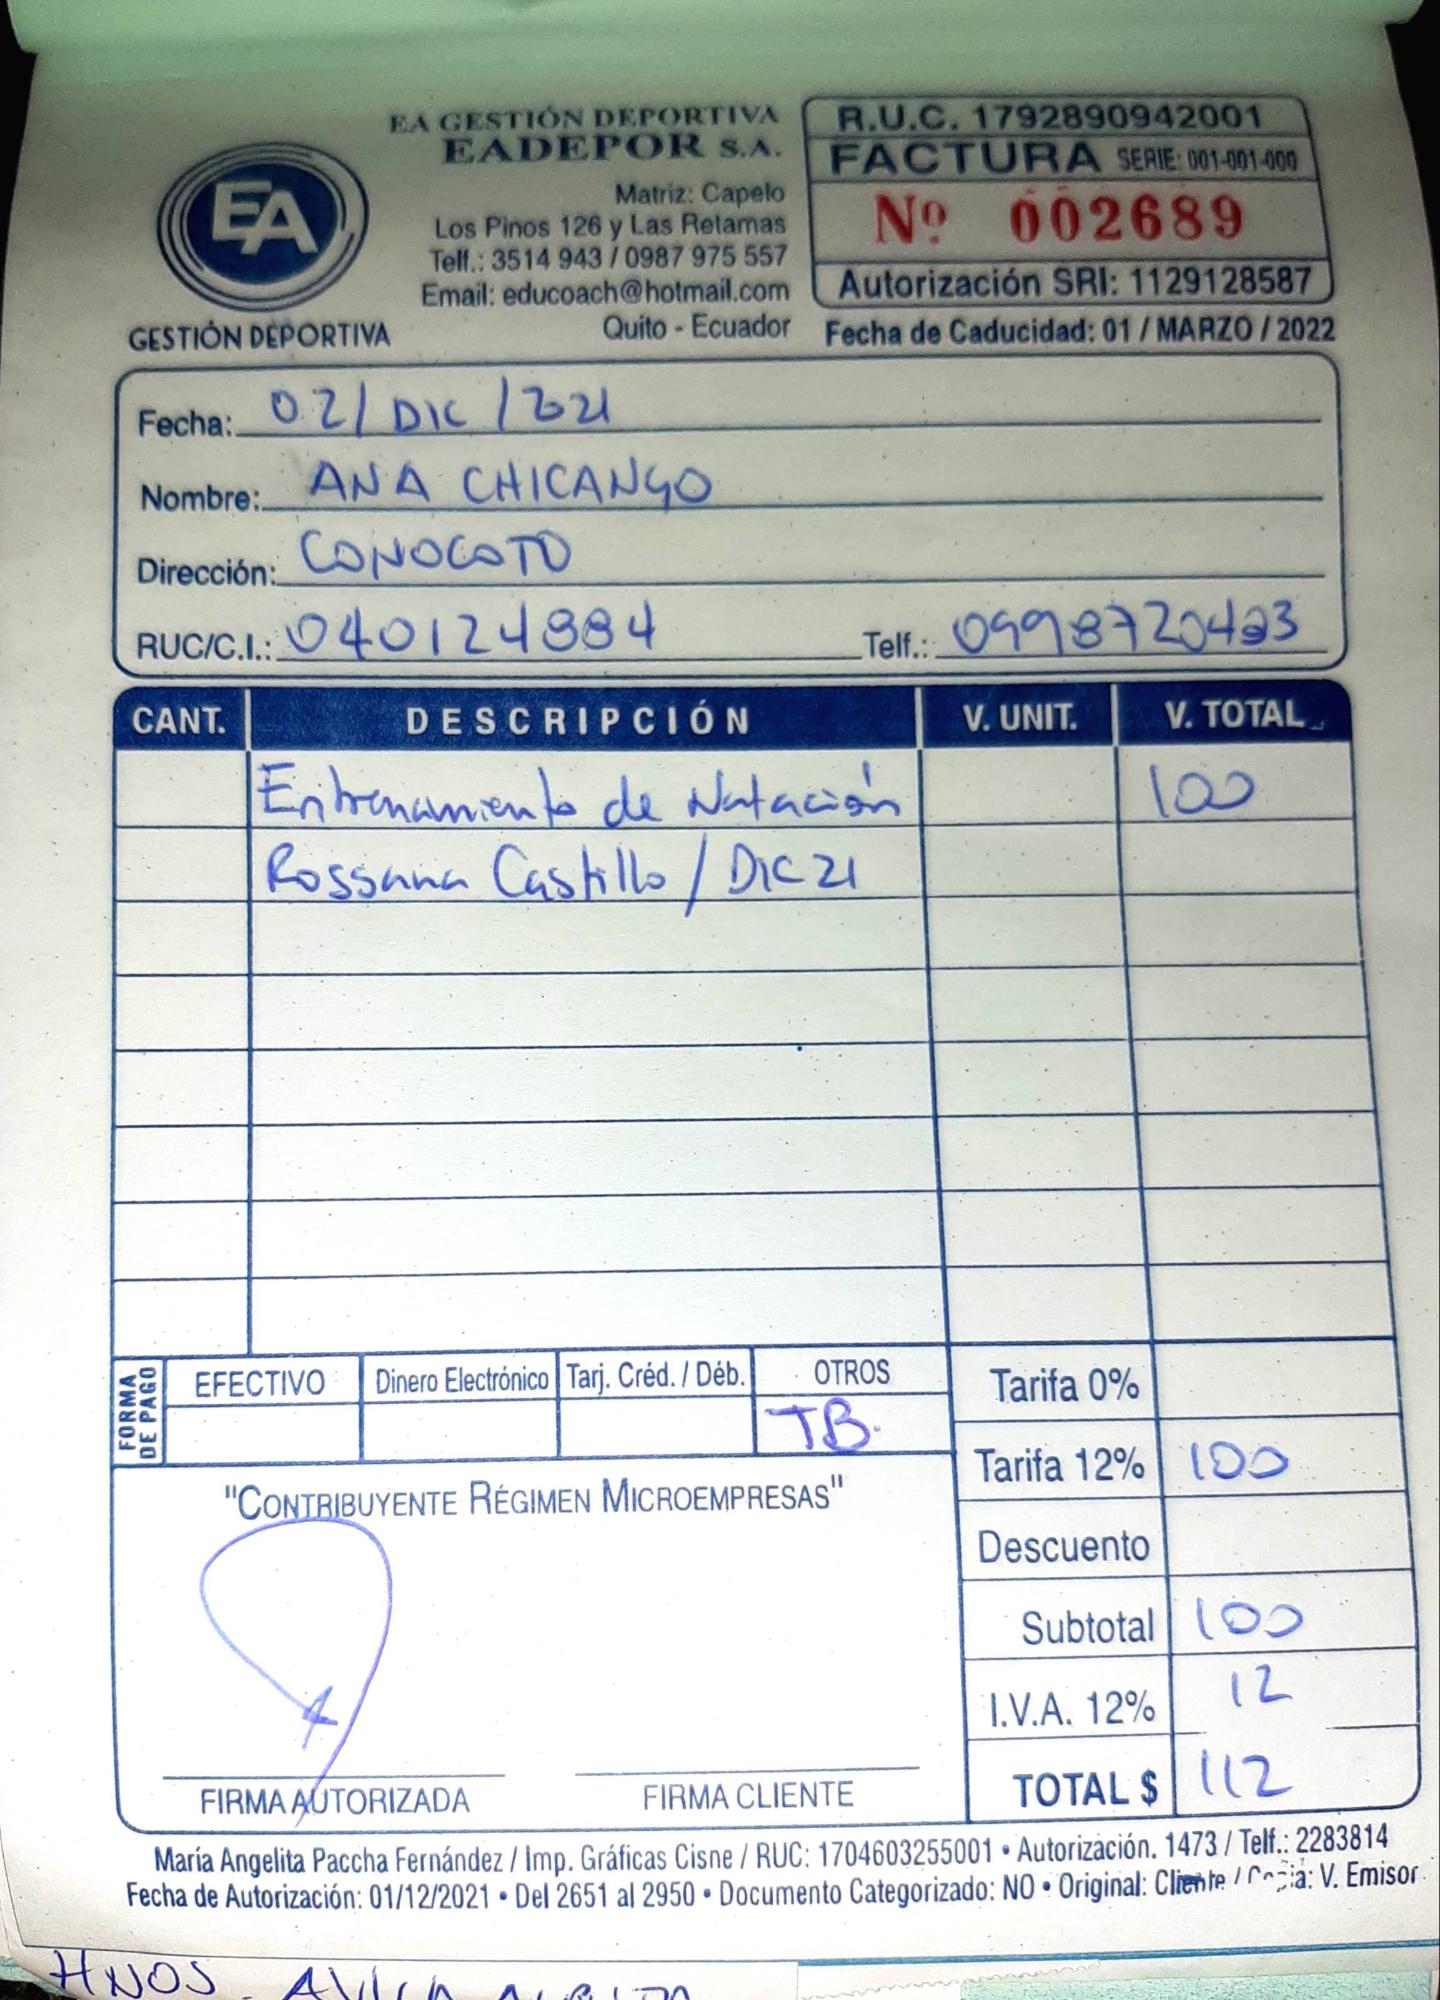 EA GESTIÓN DEPORTIVA
EADEPOR S.A.
Matriz: Capelo
Los Pinos 126 y Las Retamas
Telf.: 3514 943 / 0987 975 557
Email: educoach@hotmail.com
Quito - Ecuador
EA
GESTIÓN DEPORTIVA
R.U.C. 1792890942001
FACTURA SERIE: 001-001-000
Nº 002689
Autorización SRI: 1129128587
Fecha de Caducidad: 01 / MARZO / 2022
Fecha: 02/ DIC / 2021
Nombre: ANA CHICANGO
Dirección: CONOCOTO
RUC/C.I.: 040124884 Telf.: 0998720423
CANT. DESCRIPCIÓN V. UNIT. V. TOTAL
Entrenamiento de Natación 100
Rossana Castillo / DIC 21
FORMA DE PAGO EFECTIVO Dinero Electrónico Tarj. Créd. / Déb. OTROS
TB.
Tarifa 0%
Tarifa 12% 100
Descuento
Subtotal 100
I.V.A. 12% 12
TOTAL $ 112
"CONTRIBUYENTE RÉGIMEN MICROEMPRESAS"
FIRMA AUTORIZADA FIRMA CLIENTE
María Angelita Paccha Fernández / Imp. Gráficas Cisne / RUC: 1704603255001 • Autorización. 1473 / Telf.: 2283814
Fecha de Autorización: 01/12/2021 • Del 2651 al 2950 • Documento Categorizado: NO • Original: Cliente / Copia: V. Emisor
HNOS.